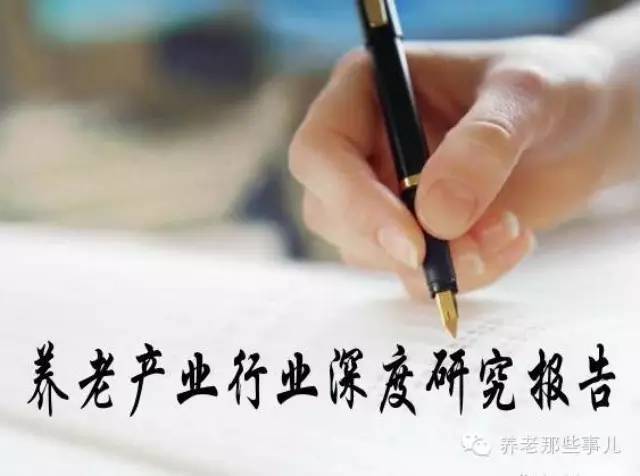 养老产业行业深度研究报告
养老那些事儿